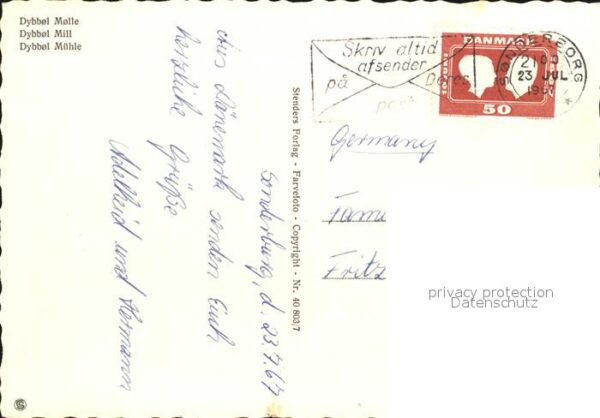 Dybbøl Mølle
Dybbøl Mill
Dybbøl Mühle
Skriv altid
afsender
på Deres
post
DANMARK
50
SØNDERBORG
21
23 JUL
1967
Stenders Forlag - Farvefoto - Copyright - Nr. 40 803/7
Sonderburg, d. 23.7.67
Aus Dänemark senden Euch
herzliche Grüße
Adelheid und Hermann
Germany
Fami
Fritz
privacy protection
Datenschutz